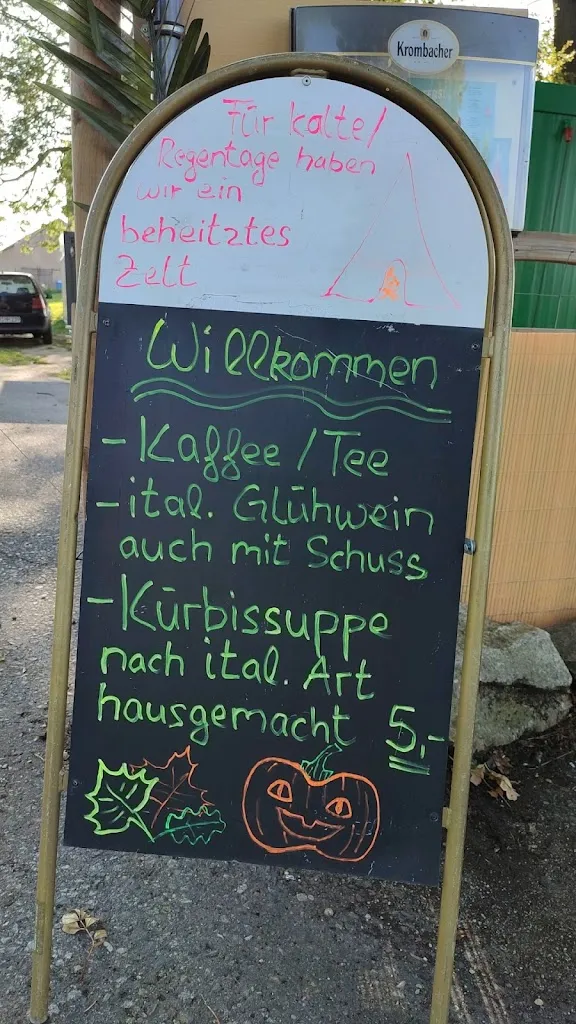 Krombacher
Für kalte/
Regentage haben
wir ein
beheitztes
Zelt
Willkommen
- Kaffee / Tee
- ital. Glühwein
auch mit Schuss
- Kürbissuppe
nach ital. Art
hausgemacht 5,-